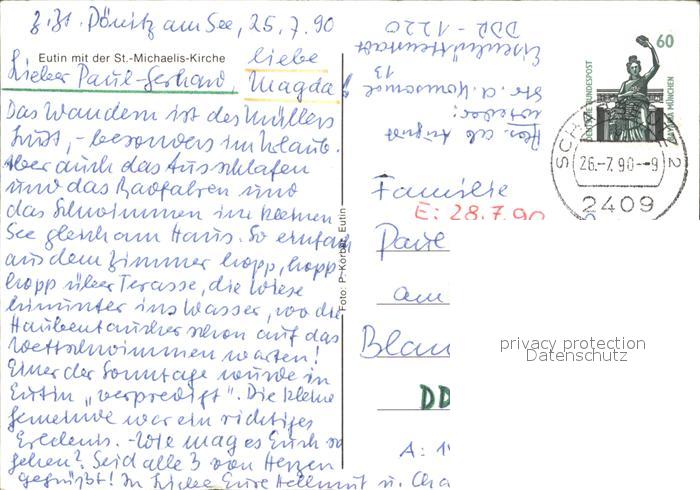 z.Zt. Dönitz am See, 25.7.90
Eutin mit der St.-Michaelis-Kirche
liebe
Lieber Paul-Gerhard, Magda!
Das Wandern ist des Müllers
Lust, - besonders im Urlaub.
Aber auch das Ausschlafen
und das Radfahren und
das Schwimmen im kleinen
See gleich am Haus. So einfach
aus dem Zimmer hopp, hopp
hopp über Terasse, die Wiese
hinunter ins Wasser, wo die
Haubentaucher schon auf das
Wettschwimmen warten!
Einer der Sonntage wurde in
Eutin „verpredigt". Die kleine
Gemeinde war ein richtiges
Erlebnis. - Wie mag es Euch so
gehen? Seid alle 3 von Herzen
gegrüßt! In Liebe Eure Hellmut u. Cha
Foto: P. Körber, Eutin
ab August
wieder:
Str. d. Komsomol
13
Eisenhüttenstadt
DDR - 1220
60
DEUTSCHE BUNDESPOST
MÜNCHEN
26.-7.90--9
2409
Familie
E: 28.7.90
Paul
am
Blan
DD
A: 1
privacy protection
Datenschutz